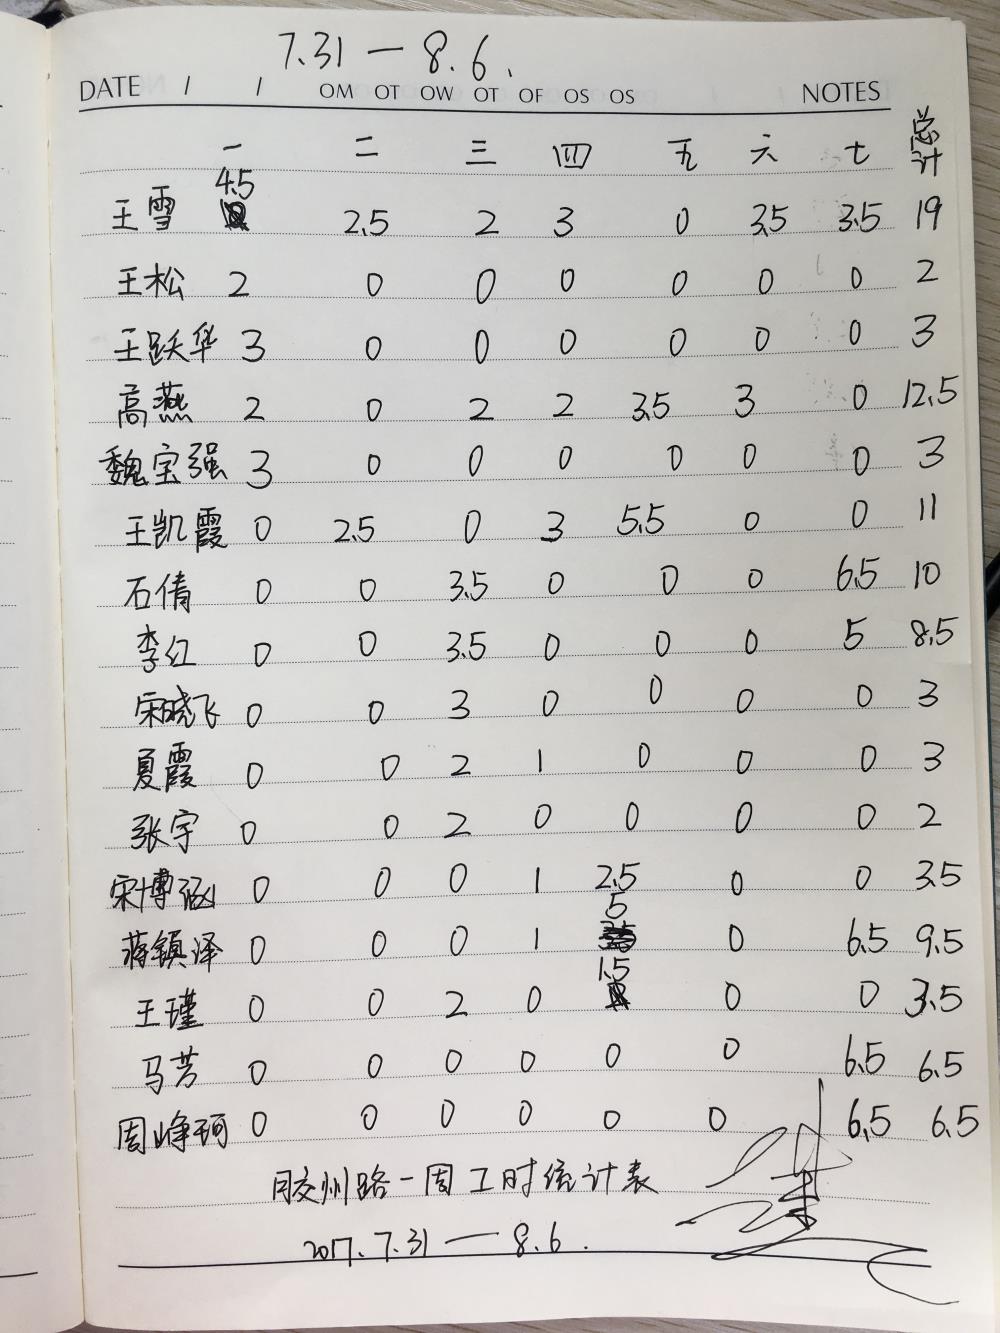 7.31 — 8.6.
DATE / / OM OT OW OT OF OS OS NOTES
一 二 三 四 五 六 七 总计
王雪 4.5 2.5 2 3 0 3.5 3.5 19
王松 2 0 0 0 0 0 0 2
王跃华 3 0 0 0 0 0 0 3
高燕 2 0 2 2 3.5 3 0 12.5
魏宝强 3 0 0 0 0 0 0 3
王凯霞 0 2.5 0 3 5.5 0 0 11
石倩 0 0 3.5 0 0 0 6.5 10
李红 0 0 3.5 0 0 0 5 8.5
宋晓飞 0 0 3 0 0 0 0 3
夏霞 0 0 2 1 0 0 0 3
张宇 0 0 2 0 0 0 0 2
宋博涵 0 0 0 1 2.5 0 0 3.5
蒋镇泽 0 0 0 1 5 0 6.5 9.5
王瑾 0 0 2 0 1.5 0 0 3.5
马芳 0 0 0 0 0 0 6.5 6.5
周峥珂 0 0 0 0 0 0 6.5 6.5
胶州路一周工时统计表
2017.7.31 — 8.6.